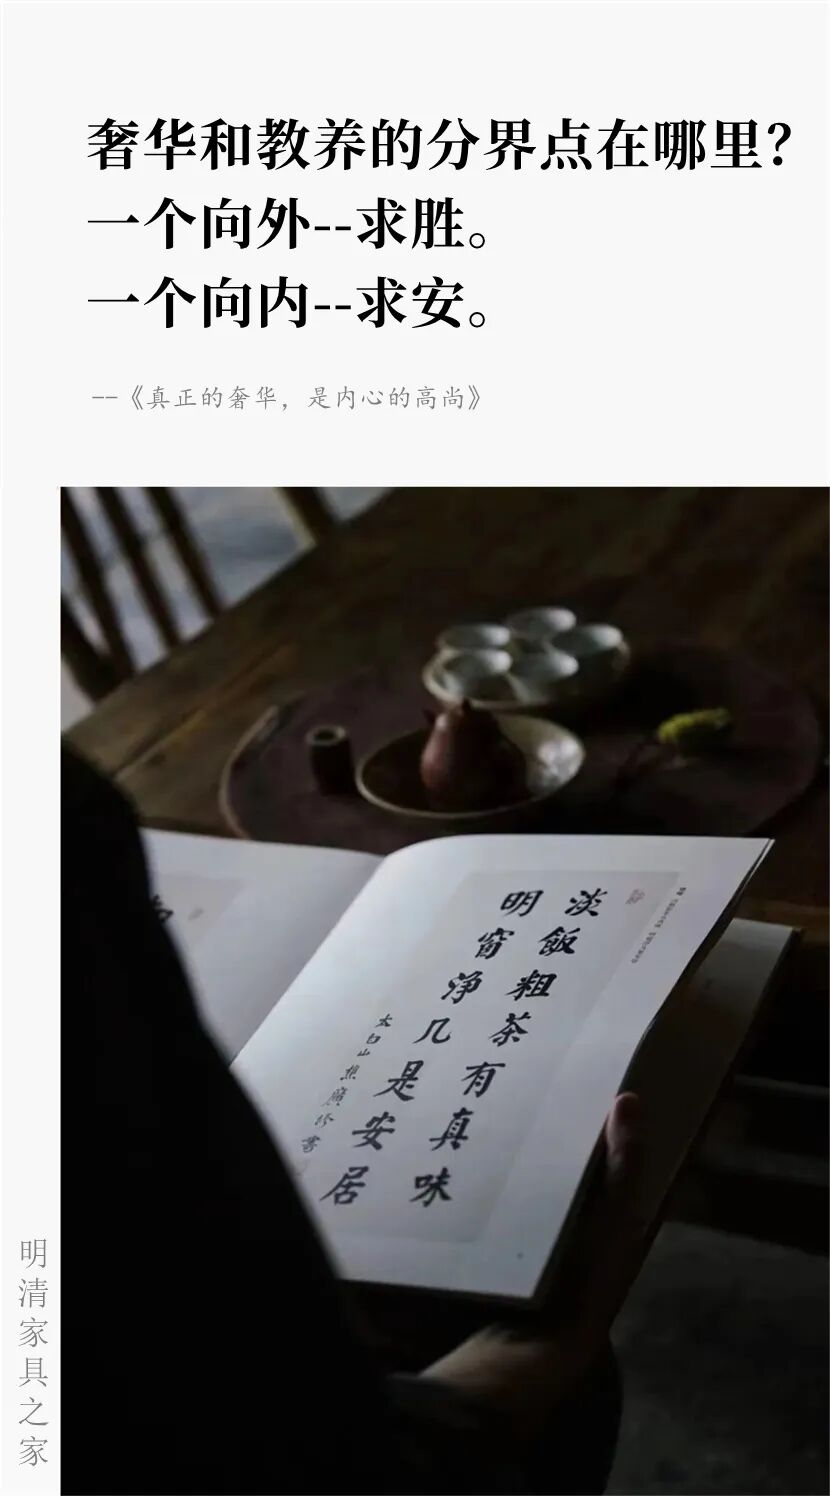 奢华和教养的分界点在哪里？
一个向外--求胜。
一个向内--求安。
--《真正的奢华，是内心的高尚》
淡飯粗茶有真味
明窗净几是安居
明清家具之家